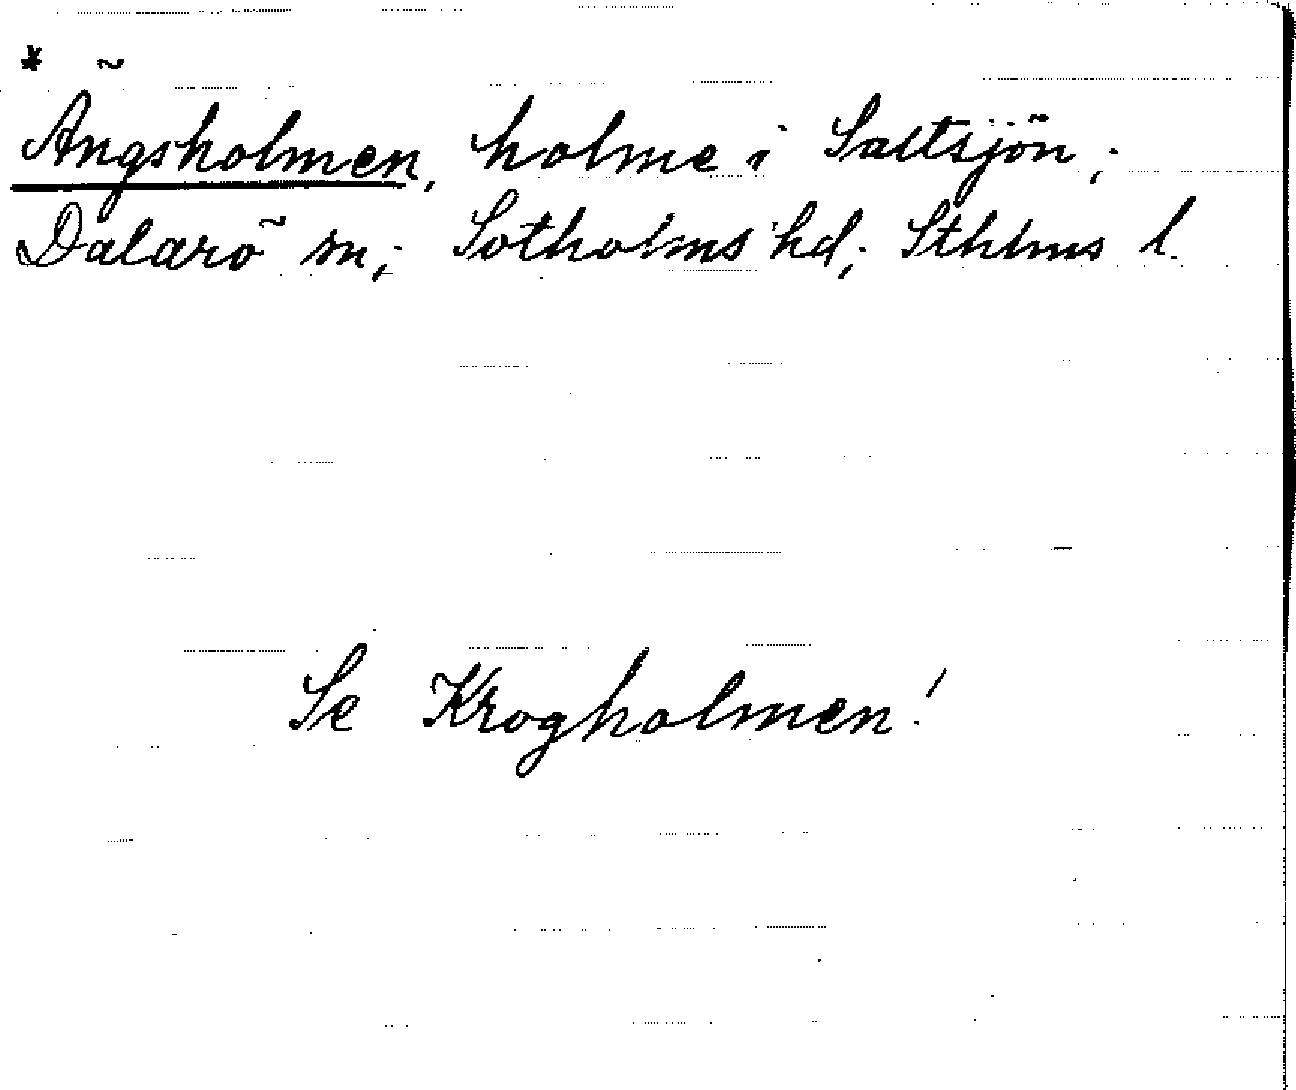 * Ängsholmen, holme i Saltsjön;
Dalarö sn; Sotholms hd; Sthlms l.
Se Krogholmen!